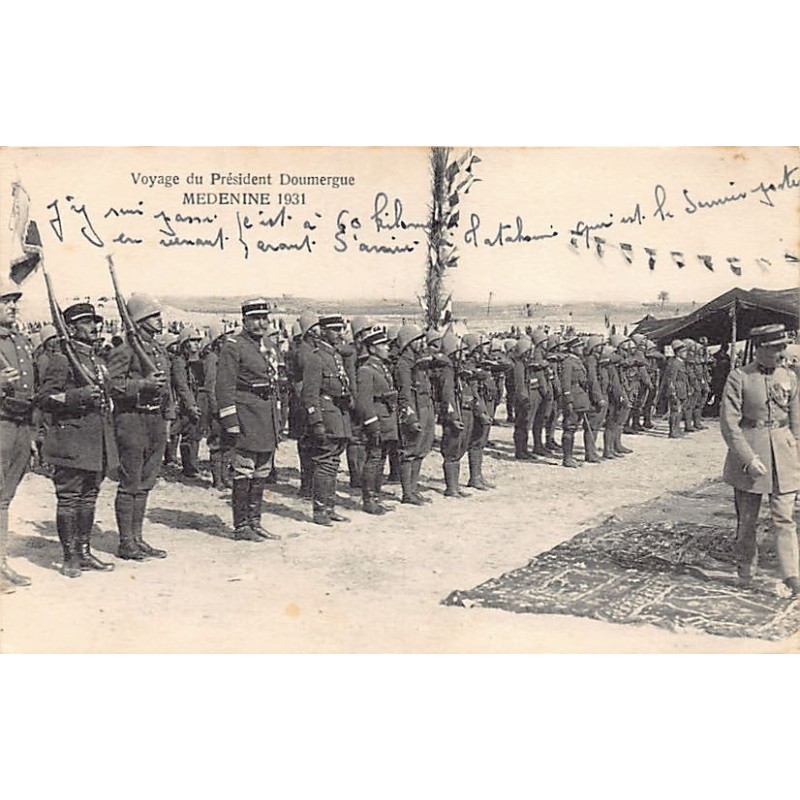 Voyage du Président Doumergue
MEDENINE 1931
J'y suis passé c'est à 60 kilom Hatahouin qui est le dernier poste
en venant avant d'arriver